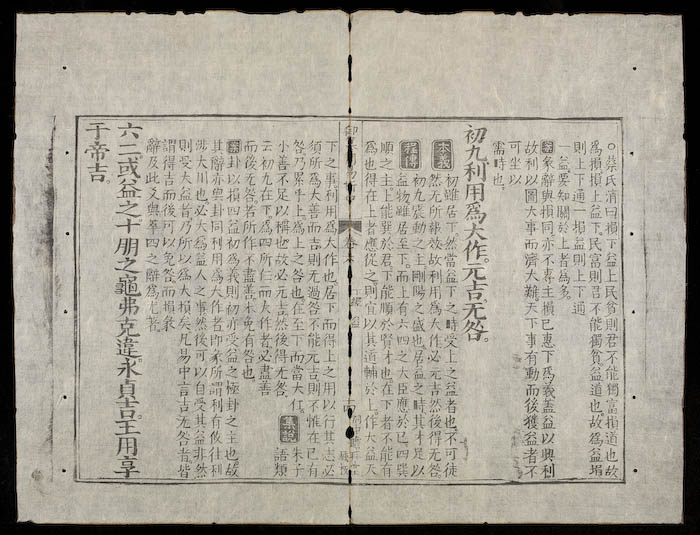 ○蔡氏淸曰損下益上民貧則君不能獨富損道也故
爲損損上益下民富則君不能獨貧益道也故爲益損
則上下通一損益則上下通
一益要知關於上者爲多
案彖辭與損同亦不專主損已惠下爲義蓋益以興利
故利以圖大事而濟大難天下事有動而後獲益者不
可坐以
需時也
初九利用爲大作元吉无咎
本義
初雖居下然當益下之時受上之益者也不可徒
然无所報效故利用爲大作必元吉然後得无咎
程傳
初九震動之主剛陽之盛也居益之時其才足以
益物雖居至下而上有六四之大臣應於已四巽
順之主上能巽於君下能順於賢才也在下者不能有
爲也得在上者應從之則宜以其道輔於上作大益天
卷六
下經 益
下之事利用爲大作也居下而得上之用以行其志必
須所爲大善而吉則无過咎不能元吉則不惟在已有
咎乃累乎上爲上之咎也在至下而當大任
小善不足以稱也故必元吉然後得无咎
集說
朱子
語類
云初九在下爲四所任而大作者必盡善
而後无咎若所作不盡善未免有咎也
案卦以損四益初爲義則初亦受益之極卦之主也故
其辭亦與卦同利用爲大作者即彖所謂利有攸往利
涉大川也必大爲益人之事然後可以自受其益非然
則受大益者乃所以爲大損矣凡易中言吉无咎者皆
謂得吉而後可以免咎而損彖
辭及此爻與萃四之辭爲尤著
六二或益之十朋之龜弗克違永貞吉王用享
于帝吉